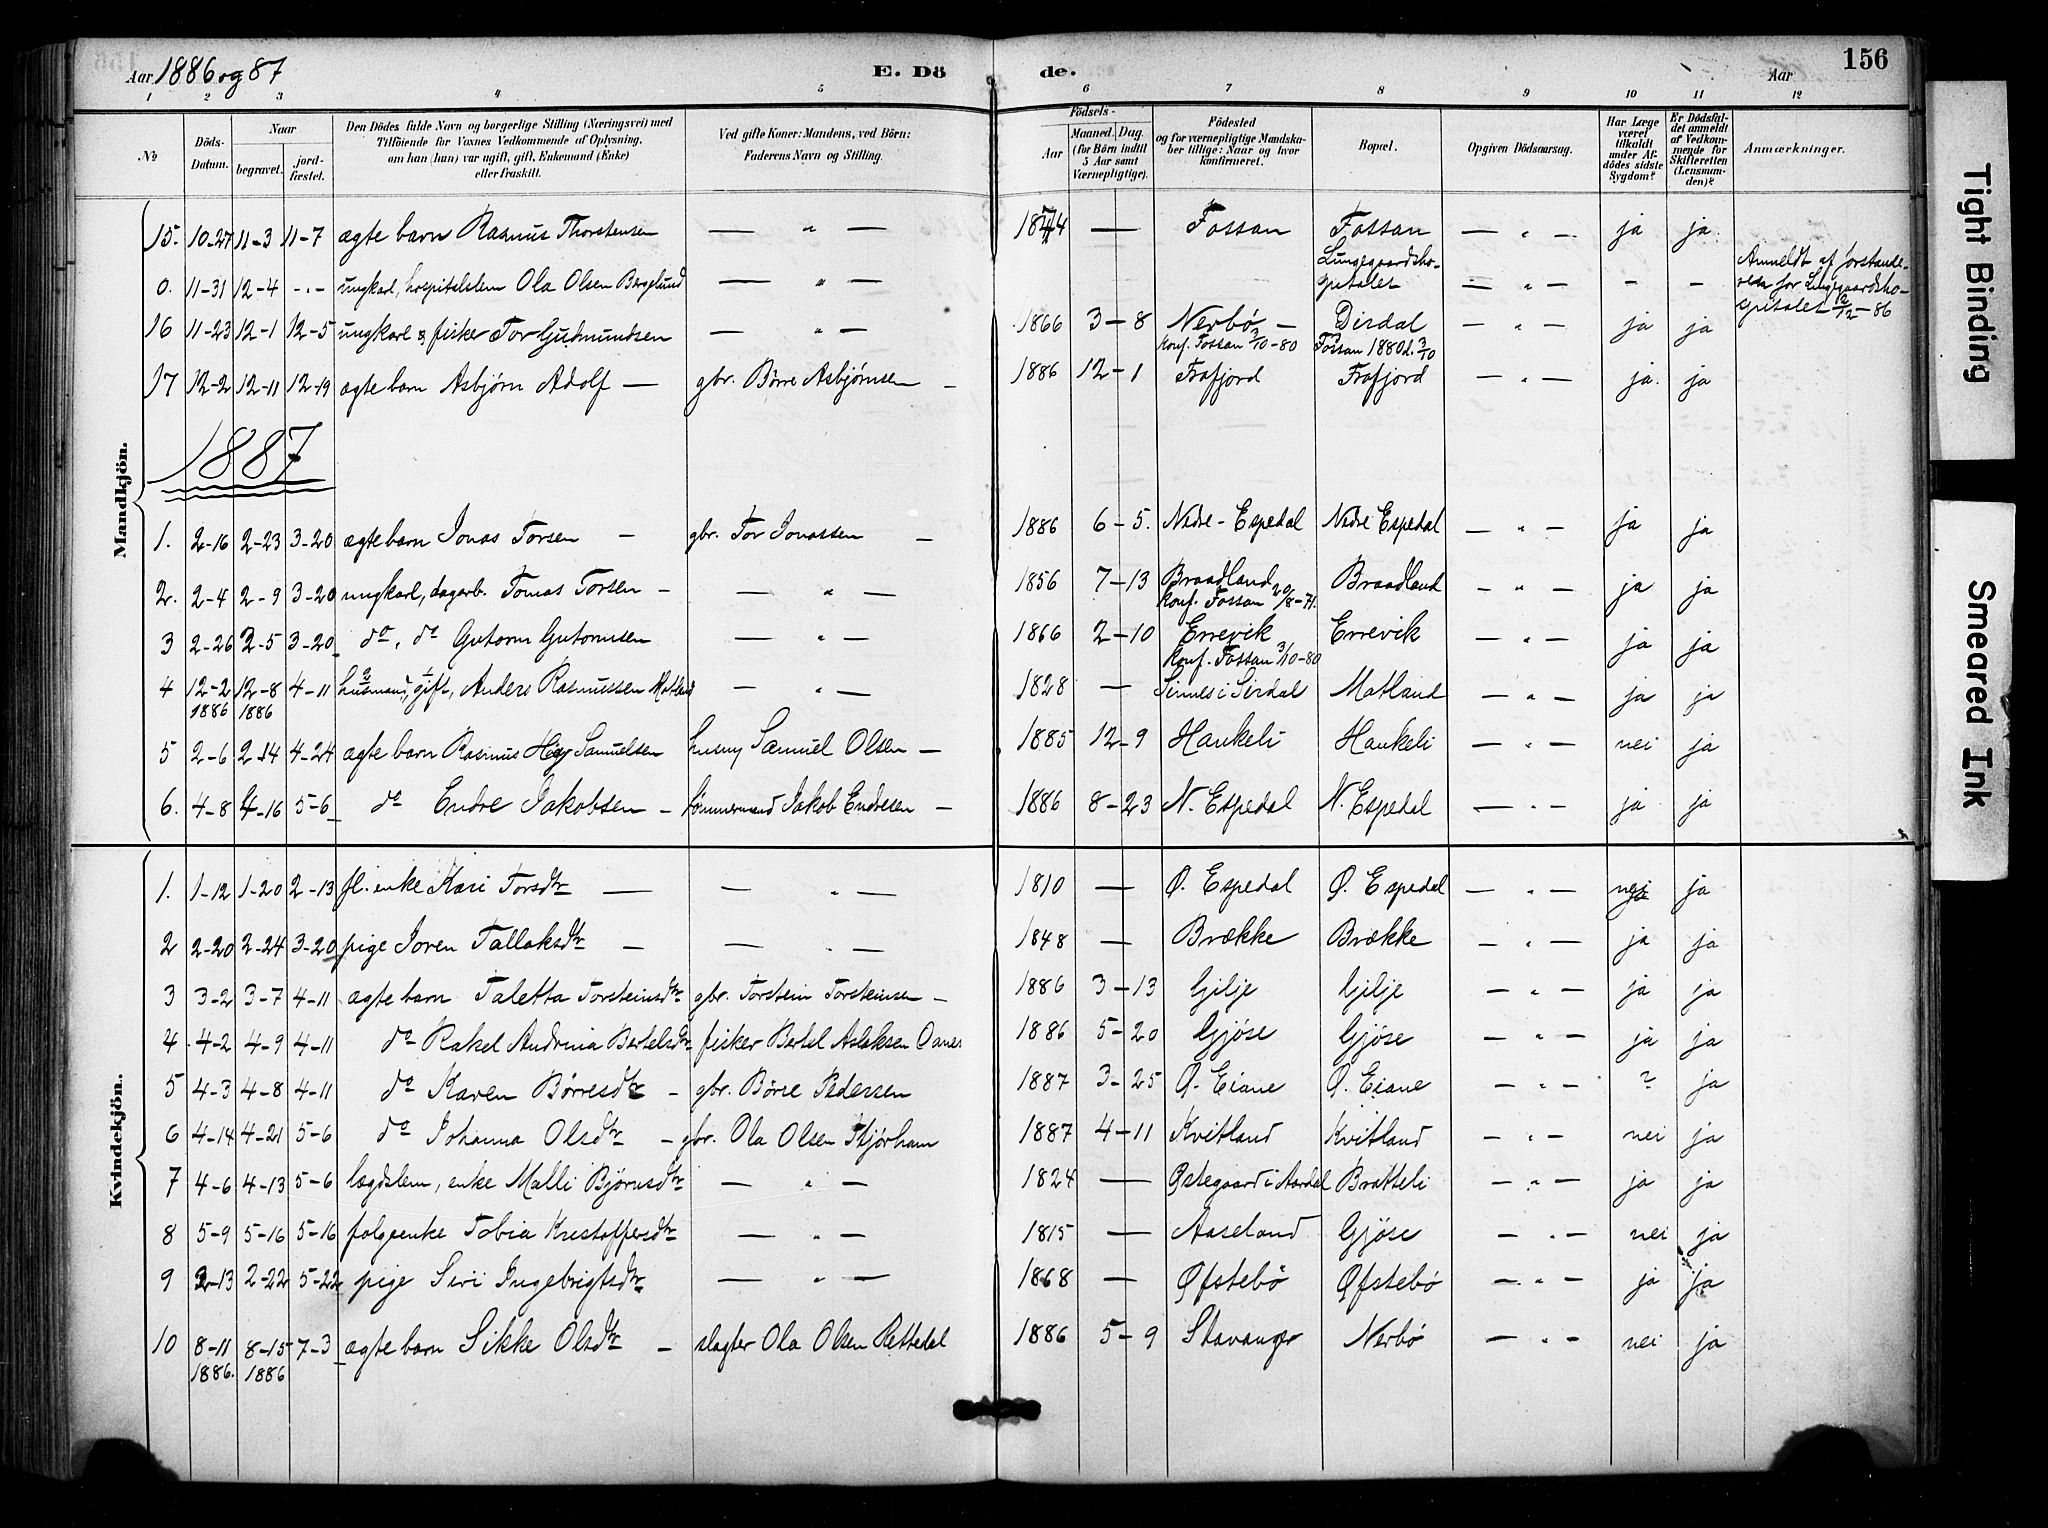 Aar 1886 og 87 E. Dö de. Aar 156
1 2 3 4 5 6 7 8 9 10 11 12
№ Döds-Datum. Naar begravet. jordfæstet. Den Dödes fulde Navn og borgerlige Stilling (Næringsvei) med Tilföiende for Voxnes Vedkommende af Oplysning, om han (hun) var ugift, gift, Enkemand (Enke) eller fraskilt. Ved gifte Koner: Mandens, ved Börn: Faderens Navn og Stilling. Födsels- Aar Maaned. Dag. (for Börn indtil 5 Aar samt Værnepligtige). Födested og for værnepligtige Mandskaber tillige: Naar og hvor konfirmeret. Bopæl. Opgiven Dödsaarsag. Har Læge været tilkaldt under Afdödes sidste Sygdom? Er Dödsfaldet anmeldt af Vedkommende for Skifteretten (Lensmanden)? Anmærkninger.
Mandkjön.
15. 10-27 11-3 11-7 ægte barn Rasmus Thorstensen — " — 1874 — Fossan Fossan — " — ja ja
0. 11-31 12-4 -"- ungkarl, hospitalslem Ola Olsen Bergelund — " — Lungegaardshospitalet — " — - - Anmeldt af forstanderen for Lungegaardshospitalet 2/12-86
16 11-23 12-1 12-5 ungkarl & fisker Tor Gudmundsen — " — 1866 3-8 Nerbø - Dirdal — " — ja ja
konf. Fossan 3/10-80 Fossan 1880 d. 3/10
17 12-2 12-11 12-19 ægte barn Asbjørn Adolf — gbr. Børre Asbjørnsen — 1886 12-1 Frafjord Frafjord — " — ja. ja
1887
1. 2-16 2-23 3-20 ægte barn Jonas Torsen — gbr. Tor Jonassen — 1886 6-5. Nedre-Espedal Nedre Espedal — " — ja ja
2. 2-4 2-9 3-20 ungkarl, dagarb. Tomas Torsen — — " — 1856 7-13 Braadland Braadland — " — ja ja
konf. Fossan 20/8-71.
3 2-26 2-5 3-20 do, do Gutorm Gutormsen — " — 1866 2-10 Errevik Errevik — " — ja ja
konf. Fossan 3/10-80
4 12-2 12-8 4-11 husmand, gift, Anders Rasmussen Matland — " — 1828 — Sinnes i Sirdal Matland — " — ja ja
1886 1886
5 2-6 2-14 4-24 ægte barn Rasmus Samuelsen husm Samuel Olsen — 1885 12-9 Haukeli Haukeli — " — nei ja
6. 4-8 4-16 5-6 do Endre Jakobsen — tømmermand Jakob Endresen — 1886 8-23 N. Espedal N. Espedal — " — ja ja
Kvindekjön.
1. 1-12 1-20 2-13 fl. enke Kari Torsdtr — — " — 1810 — Ø. Espedal Ø. Espedal — " — nei ja
2 2-20 2-24 3-20 pige Joren Tallaksdtr — — " — 1848 — Brække Brække — " — ja ja
3 3-2 3-7 4-11 ægte barn Taletta Torsteinsdtr gbr. Torstein Torsteinsen — 1886 3-13 Gilje Gilje — " — ja ja
4 4-2 4-9 4-11 do Rakel Andrina Bertelsdtr fisker Bertel Aslaksen Oanes 1886 5-20 Gjøse Gjøse — " — ja ja
5 4-3 4-8 4-11 do Karen Børresdtr — gbr. Børre Pedersen 1887 3-25 Ø. Eiane Ø. Eiane — " — ? ja
6 4-14 4-21 5-6 do Johanna Olsdtr — gbr. Ola Olsen Stjørham 1887 4-11 Kvitland Kvitland — " — nei ja
7 4-6 4-13 5-6 lægdslem, enke Malli Bjørnsdtr — " — 1824 — Østegaard i Aardal Bratteli — " — ja ja
8 5-9 5-16 5-16 folgeenke Tobia Kristoffersdtr — " — 1815 — Aaseland Gjøse — " — nei ja
9 2-13 2-22 5-22 pige Siri Ingebrigtsdtr — " — 1868 — Øfstebø Øfstebø — " — ja ja
10 8-11 8-15 7-3 ægte barn Sikke Olsdtr — slagter Ola Olsen Rettedal 1886 5-9 Stavanger Nerbø — " — nei ja
1886. 1886
Tight Binding
Smeared Ink